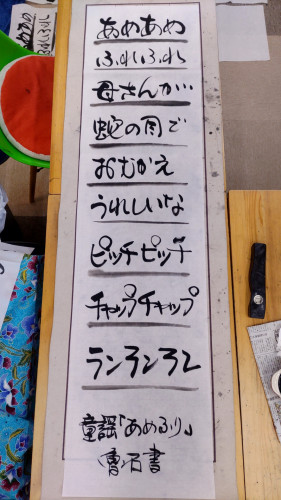 あめあめ
ふれふれ
母さんが…
蛇の目で
おむかえ
うれしいな
ピッチピッチ
チャップチャップ
ランランラン
童謡「あめふり」
石書